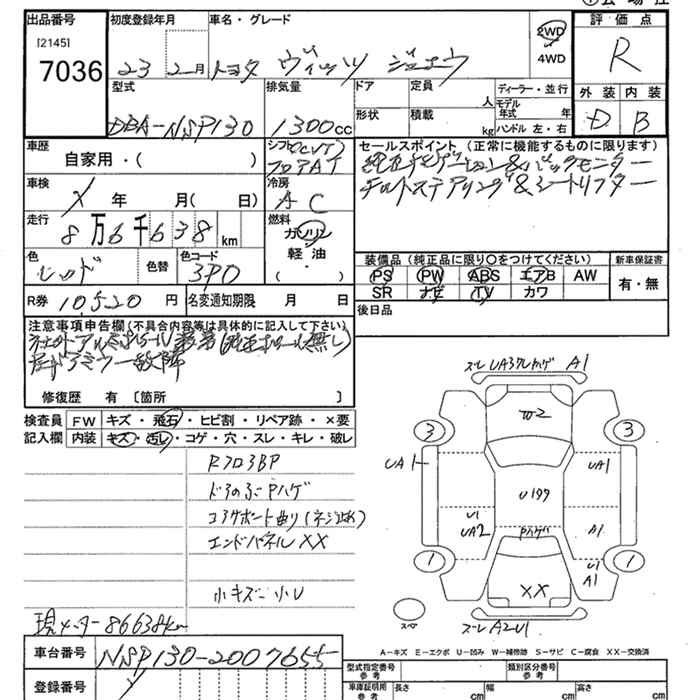 出品番号
[2145]
7036
初度登録年月
23 2月
車名・グレード
トヨタ ヴィッツ ジュエラ
2WD
4WD
評価点
R
外装 内装
D B
型式
DBA-NSP130
排気量
1300cc
ドア
形状
定員
人
積載
kg
ディーラー・並行
モデル年式 年
ハンドル 左・右
車歴
自家用・( )
シフト(CVT)
フロアAT
セールスポイント (正常に機能するものに限ります)
純正ナビゲーション&バックモニター
チルトステアリング&シートリフター
車検
年 月( 日)
冷房
AC
走行
8万6千638km
燃料
ガソリン
軽油
( )
色
レッド
色替
色コード
3P0
装備品 (純正品に限り○をつけてください)
PS PW ABS エアB AW
SR ナビ TV カワ
新車保証書
有・無
R券 10,520円
名変通知期限 月 日
後日品
注意事項申告欄(不具合内容等は具体的に記入して下さい)
社外アルミホイール装着(純正ホイール無し)
左ドアミラー故障
修復歴 有 [箇所 ]
検査員
記入欄
FW キズ・飛石・ヒビ割・リペア跡・×要
内装 キズ・汚レ・コゲ・穴・スレ・キレ・破レ
Rフロ3BP
ドアのふちPハゲ
コアサポート曲り(ネジ止め)
エンドパネルXX
小キズ・小U
現メーター86638km
ズレUA3 A1
W2
3
3
UA1
UA1
U1
UA2
U199
Pハゲ
A1
U1
A1
1
1
XX
スペア
ズレA2U1
A-キズ E-エクボ U-凹み W-補修跡 S-サビ C-腐食 XX-交換済
車台番号
NSP130-2007655
登録番号
型式指定番号
参考
類別区分番号
参考
車庫証明用
参考
長さ cm
幅 cm
高さ cm